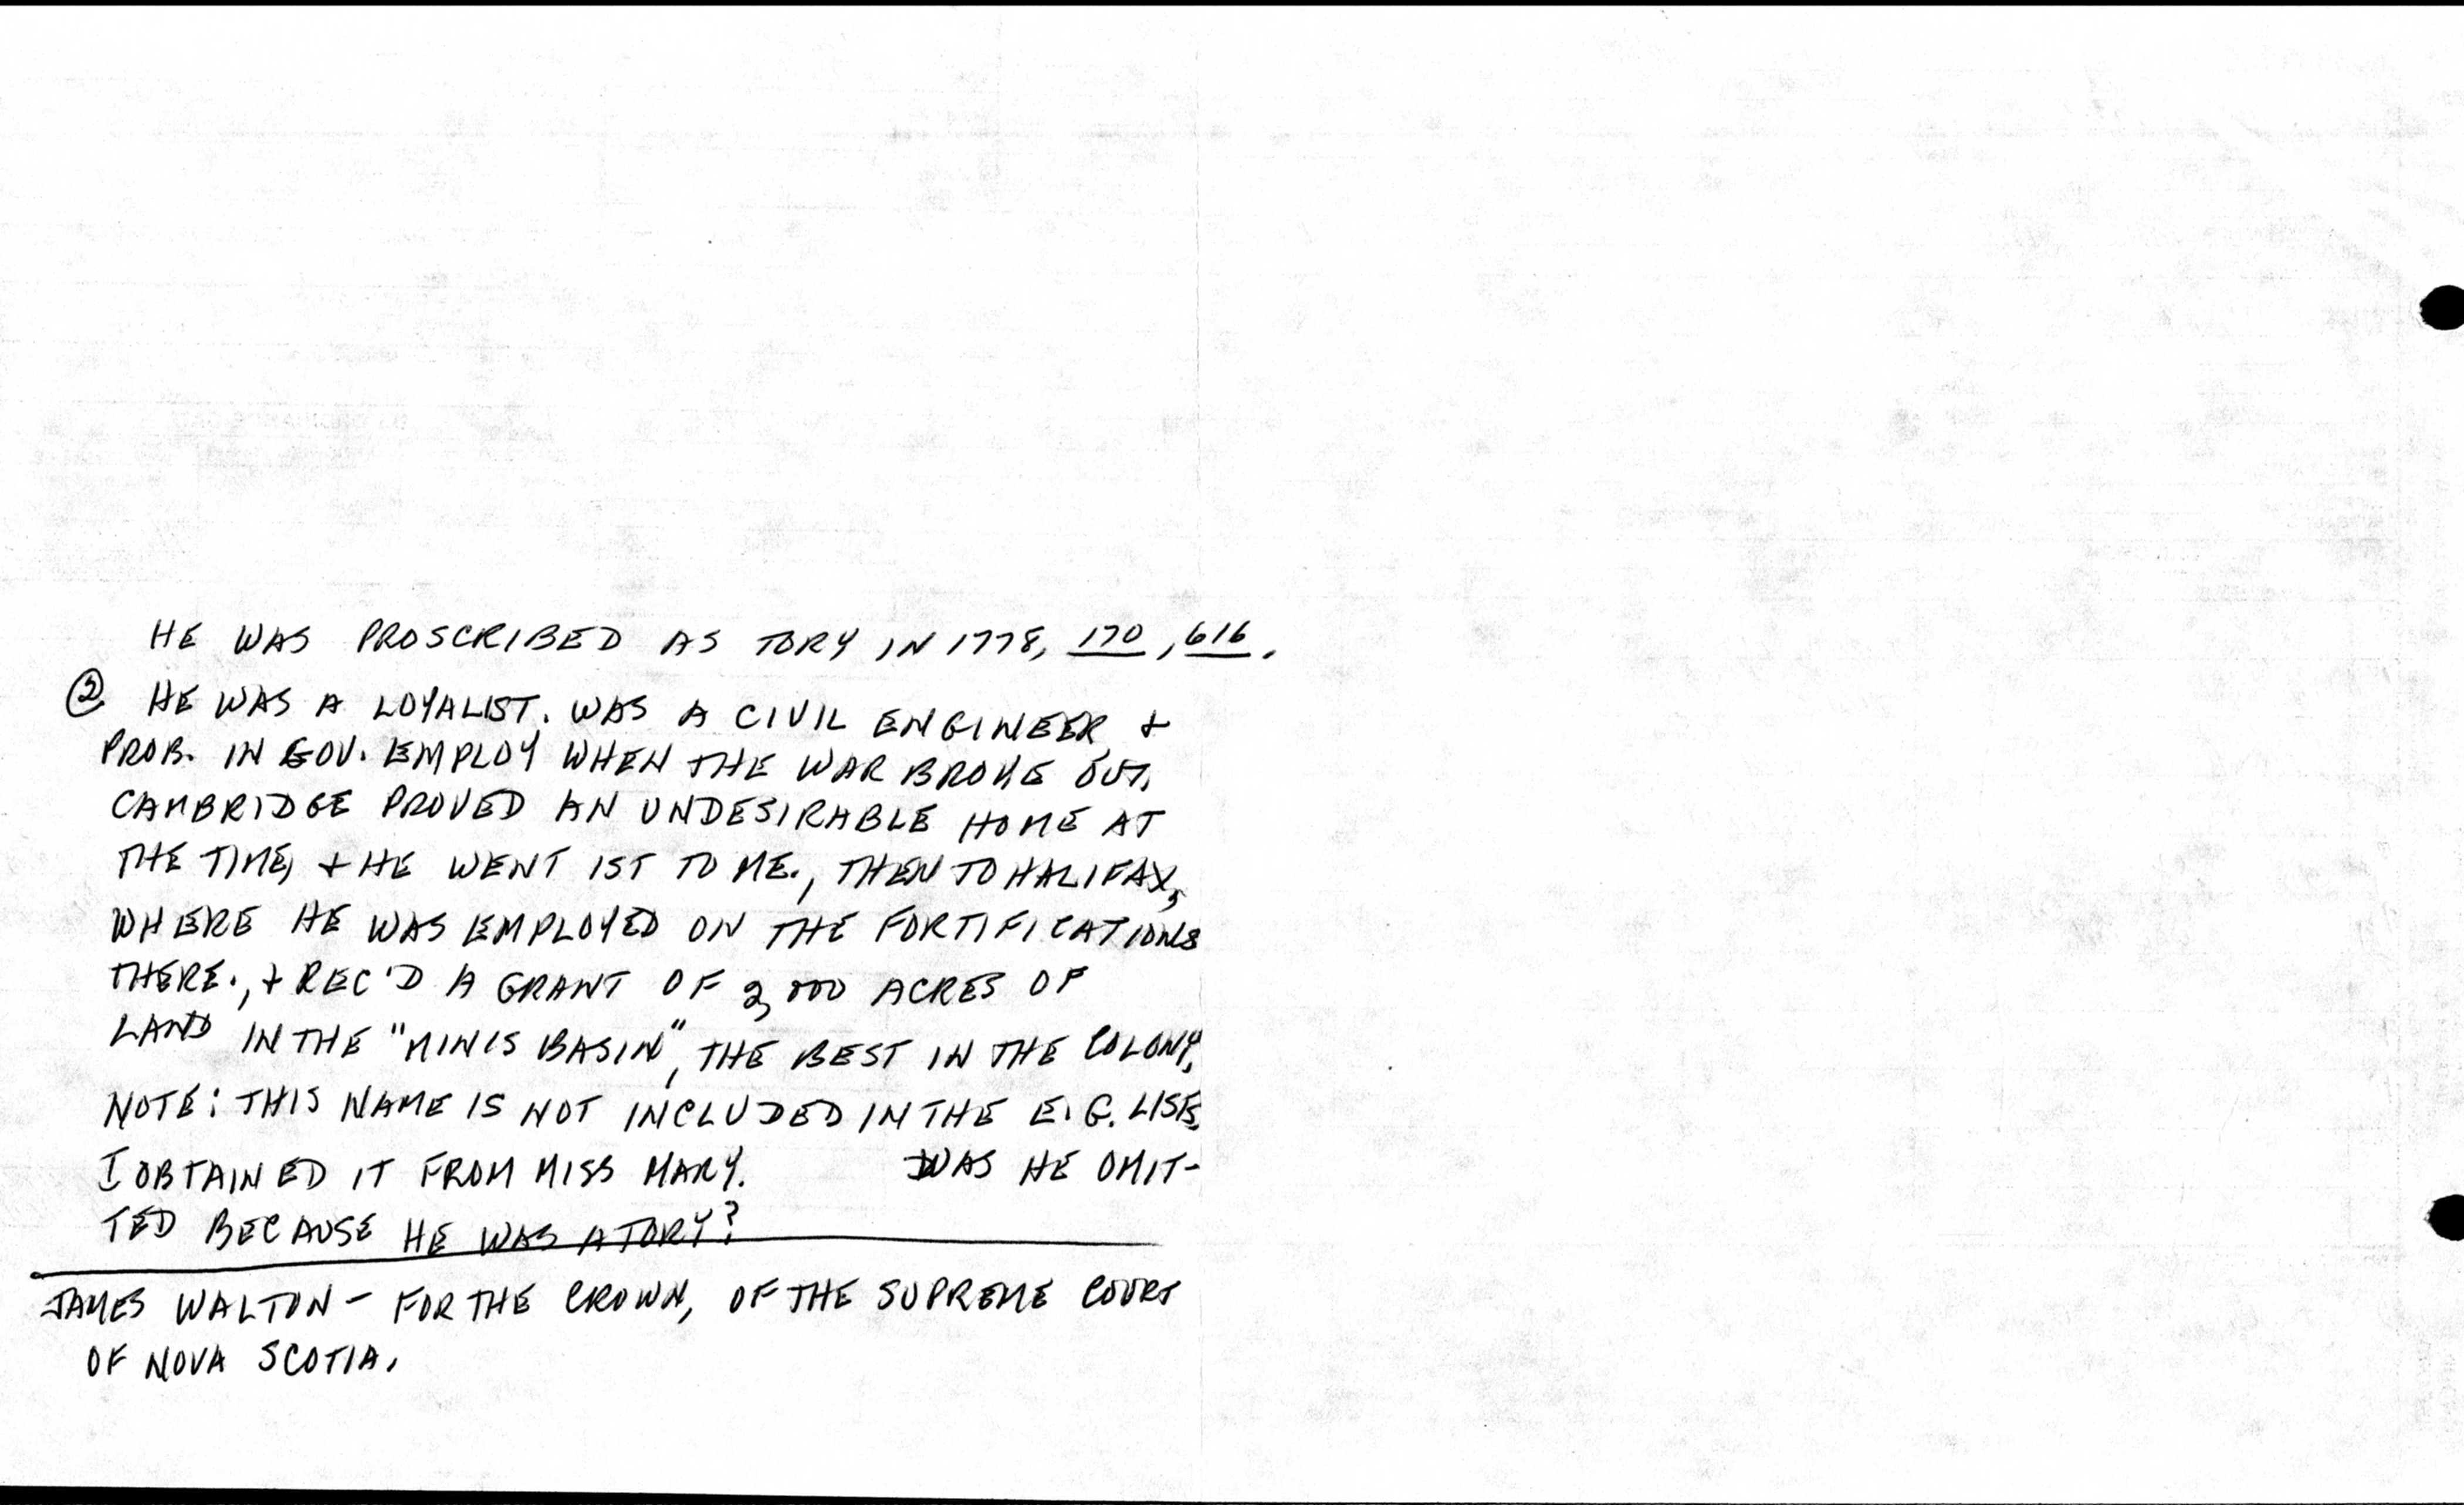 HE WAS PROSCRIBED AS TORY IN 1778, 170, 616.
② HE WAS A LOYALIST. WAS A CIVIL ENGINEER, +
PROB. IN GOV. EMPLOY WHEN THE WAR BROKE OUT.
CAMBRIDGE PROVED AN UNDESIRABLE HOME AT
THE TIME, + HE WENT 1ST TO ME., THEN TO HALIFAX,
WHERE HE WAS EMPLOYED ON THE FORTIFICATIONS
THERE., + REC'D A GRANT OF 2,000 ACRES OF
LAND IN THE "MINIS BASIN", THE BEST IN THE COLONY,
NOTE: THIS NAME IS NOT INCLUDED IN THE E. G. LISTS,
I OBTAINED IT FROM MISS MARY. WAS HE OMIT-
TED BECAUSE HE WAS A TORY?
JAMES WALTON - FOR THE CROWN, OF THE SUPREME COURT
OF NOVA SCOTIA.